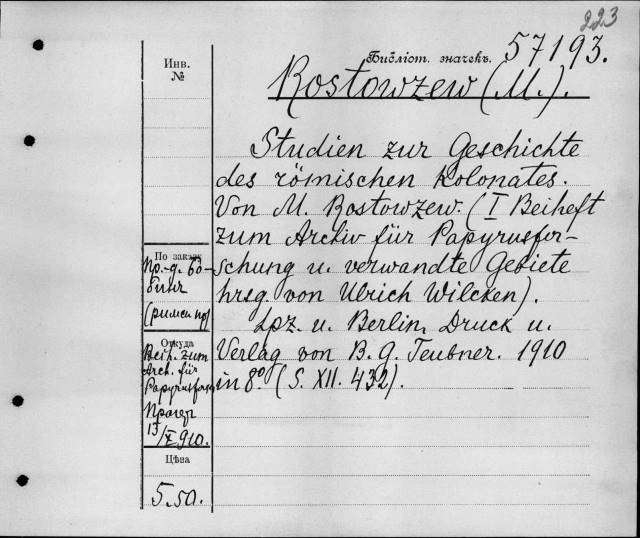 223
Библіот. значекъ. 57193.
Rostowzew (M.).
Инв.
№
Studien zur Geschichte
des römischen Kolonates.
Von M. Rostowzew. (I Beiheft
zum Archiv für Papyrusfor-
schung u. verwandte Gebiete
hrsg. von Ulrich Wilcken).
Lpz. u. Berlin, Druck u.
Verlag von B. G. Teubner. 1910
in 8º. (S. XII. 432).
По заказу
(римск пр)
Откуда
Beih. zum
Arch. für
Papyrusforsch
13/X 910.
Цѣва
5.50.